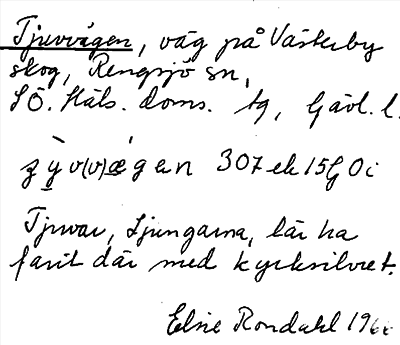 Tjuvvägen, väg på Västerby
skog, Rengsjö sn,
SÖ. Häls. doms. tg, Gävl. l.
307 ek 15G0i
Tjuvar, Ljungarna, lär ha
farit där med kyrksilvret.
Elsie Rondahl